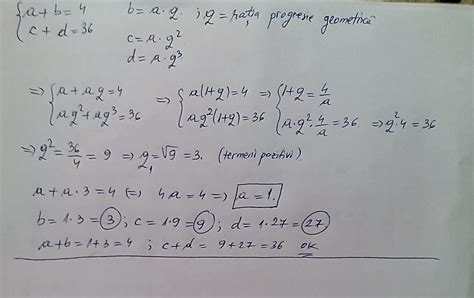 {a+b=4   b=a·q. ; q = rația progresie geometrică
{c+d=36   c=a·q²
d=a·q³
=> {a+aq=4   => {a(1+q)=4   => {1+q=4/a
{aq²+aq³=36   {aq²(1+q)=36   {a·q²·4/a=36 => q²·4=36
=> q²=36/4=9 => q₁=√9=3. (termeni pozitivi).
a+a·3=4 (=) 4a=4 => a=1.
b=1·3=3 ; c=1·9=9 ; d=1·27=27
a+b=1+3=4 ; c+d=9+27=36 OK